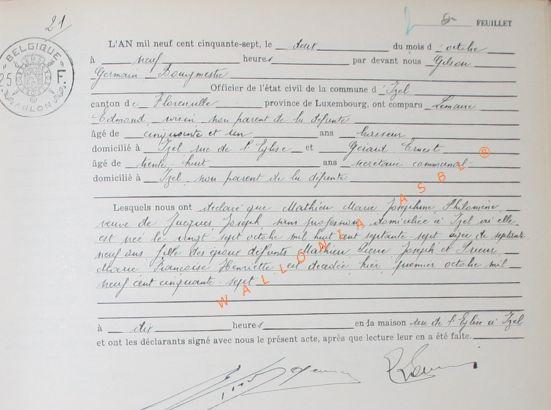 21
8e FEUILLET
BELGIQUE
25 F.
L'AN mil neuf cent cinquante-sept, le deux du mois d'octobre
à neuf heures par devant nous Gilson
Germain Bourgmestre
Officier de l'état civil de la commune d'Izel
canton de Florenville province de Luxembourg, ont comparu Lemaire
Edmond, voisin, non parent de la défunte
âgé de cinquante et un ans
domicilié à Izel rue de l'Eglise et Gérard Ernest
âgé de trente huit ans secrétaire communal
domicilié à Izel non parent de la défunte
Lesquels nous ont déclaré que Mathieu Marie Joséphine Philomène
veuve de Jacques Joseph sans profession domiciliée à Izel où elle
est née le vingt sept octobre mil huit cent septante sept âgée de septante
neuf ans fille des époux défunts Mathieu Pierre Joseph et
Marie Françoise Henriette est décédée hier premier octobre mil
neuf cent cinquante sept
à dix heures en la maison rue de l'Eglise à Izel
et ont les déclarants signé avec nous le présent acte, après que lecture leur en a été faite.
WALLONIA ASBL ®